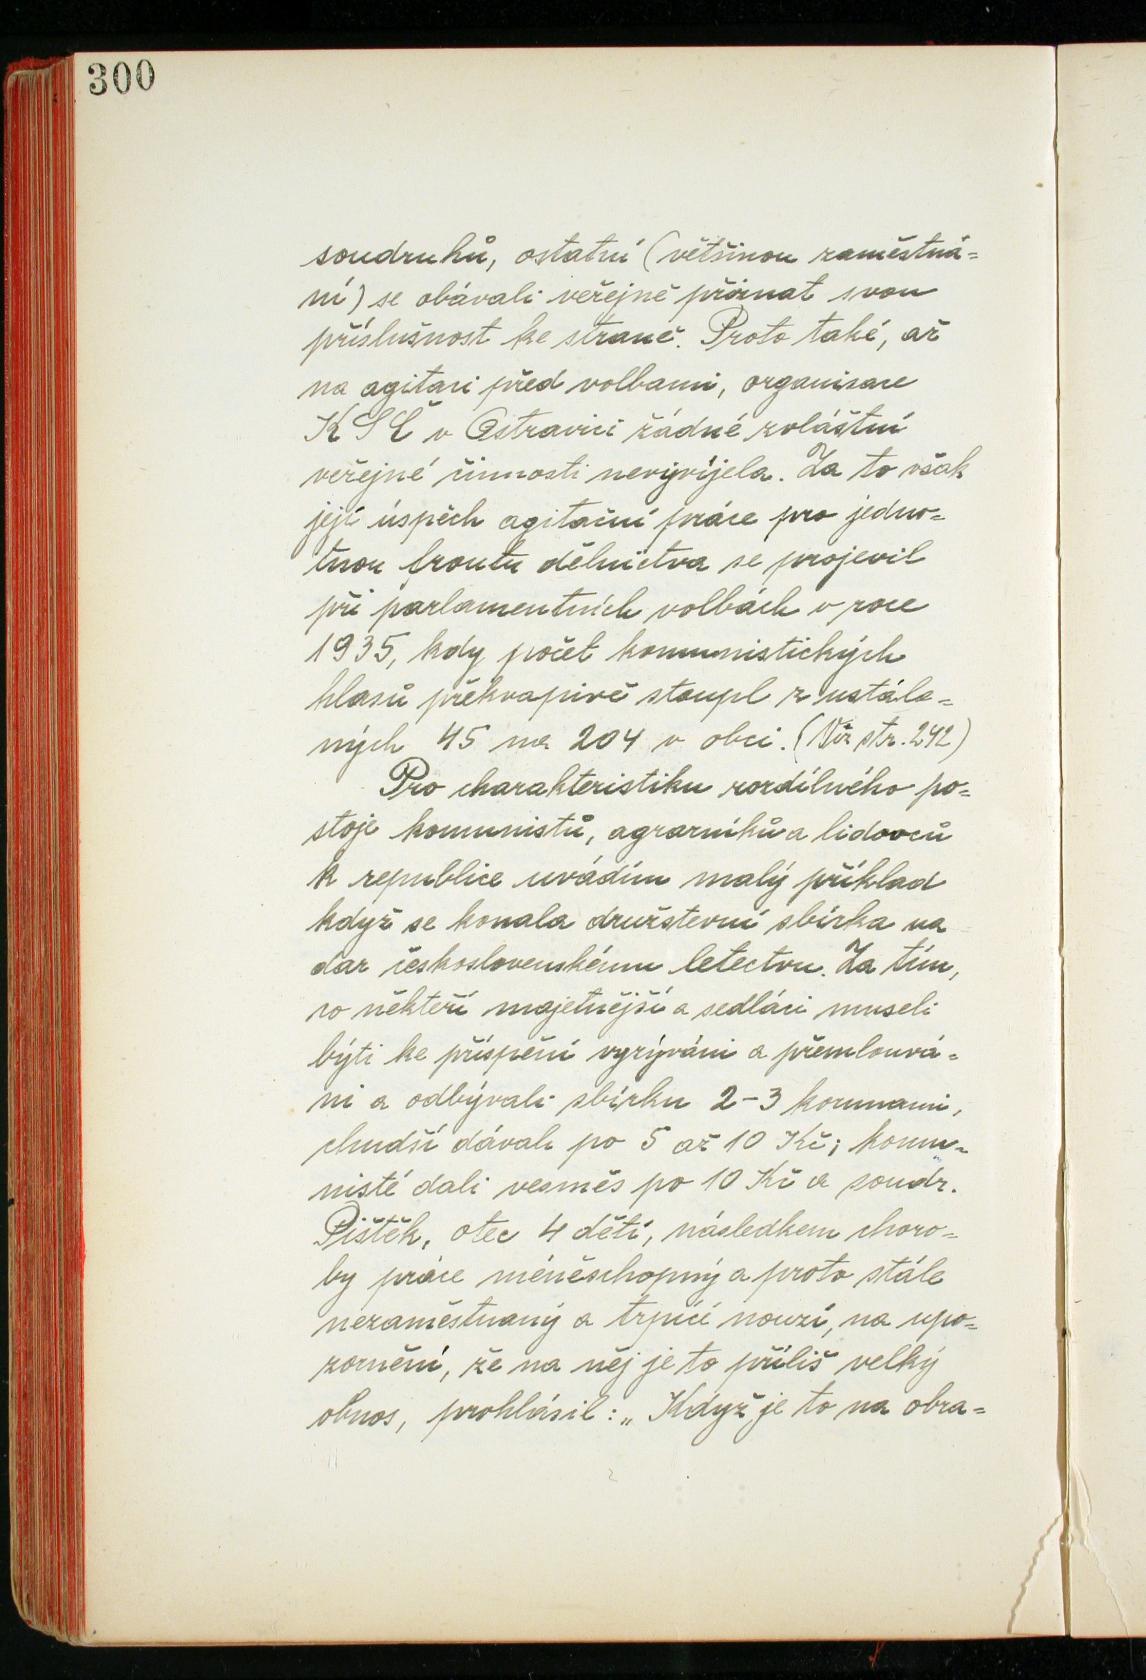 300
soudruhů, ostatní (většinou zaměstná=
ní) se obávali veřejně přiznat svou
příslušnost ke straně. Proto také, až
na agitaci před volbami, organisace
KSČ v Ostravici žádné zvláštní
veřejné činnosti nevyvíjela. Za to však
její úspěch agitační práce pro jedno=
tnou frontu dělnictva se projevil
při parlamentních volbách v roce
1935, kdy počet komunistických
hlasů překvapivě stoupl z ustále=
ných 45 na 204 v obci. (Viz str. 242)
Pro charakteristiku rozdílného po=
stoje komunistů, agrárníků a lidovců
k republice uvádím malý příklad
když se konala družstevní sbírka na
dar československému letectvu. Za tím,
co někteří majetnější a sedláci museli
býti ke příspění vyzýváni a přemlouvá=
ni a odbývali sbírku 2-3 korunami,
chudší dávali po 5 až 10 Kč; komu=
nisté dali vesměs po 10 Kč a soudr.
Pištěk, otec 4 dětí, následkem choro=
by práce méněschopný a proto stále
nezaměstnaný a trpící nouzí, na upo=
zornění, že na něj je to příliš velký
obnos, prohlásil: „Když je to na obra=